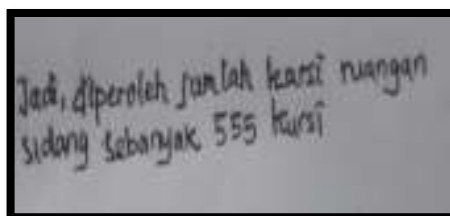 Jadi, diperoleh jumlah kursi ruangan
sidang sebanyak 555 kursi